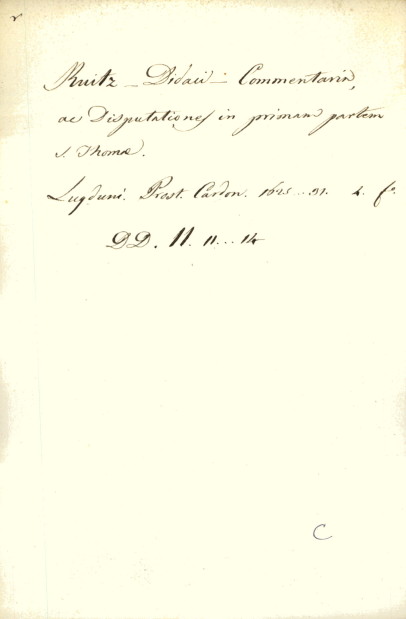 Ruitz _ Didaci _ Commentaria,
ac Disputationes in primam partem
S. Thomæ.
Lugduni. Prost. Cardon. 1625...31. 4. fo.
DD. 11. 11...14
C